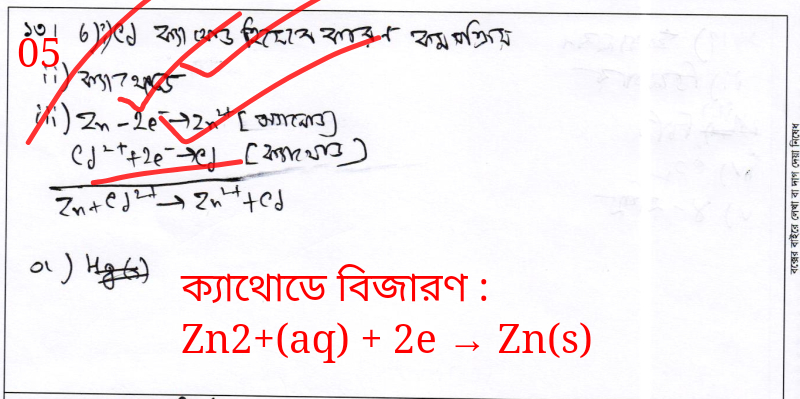 ১৩। ৬) i) Cd ক্যাথোড হিসেবে কারণ কম সক্রিয়
05
ii) ক্যাথোড
iii) Zn - 2e⁻ → Zn²⁺ [অ্যানোড]
Cd²⁺ + 2e⁻ → Cd [ক্যাথোড]
Zn + Cd²⁺ → Zn²⁺ + Cd
ক্যাথোডে বিজারণ :
Zn2+(aq) + 2e → Zn(s)
বক্সের বাইরে লেখা বা দাগ দেয়া নিষেধ